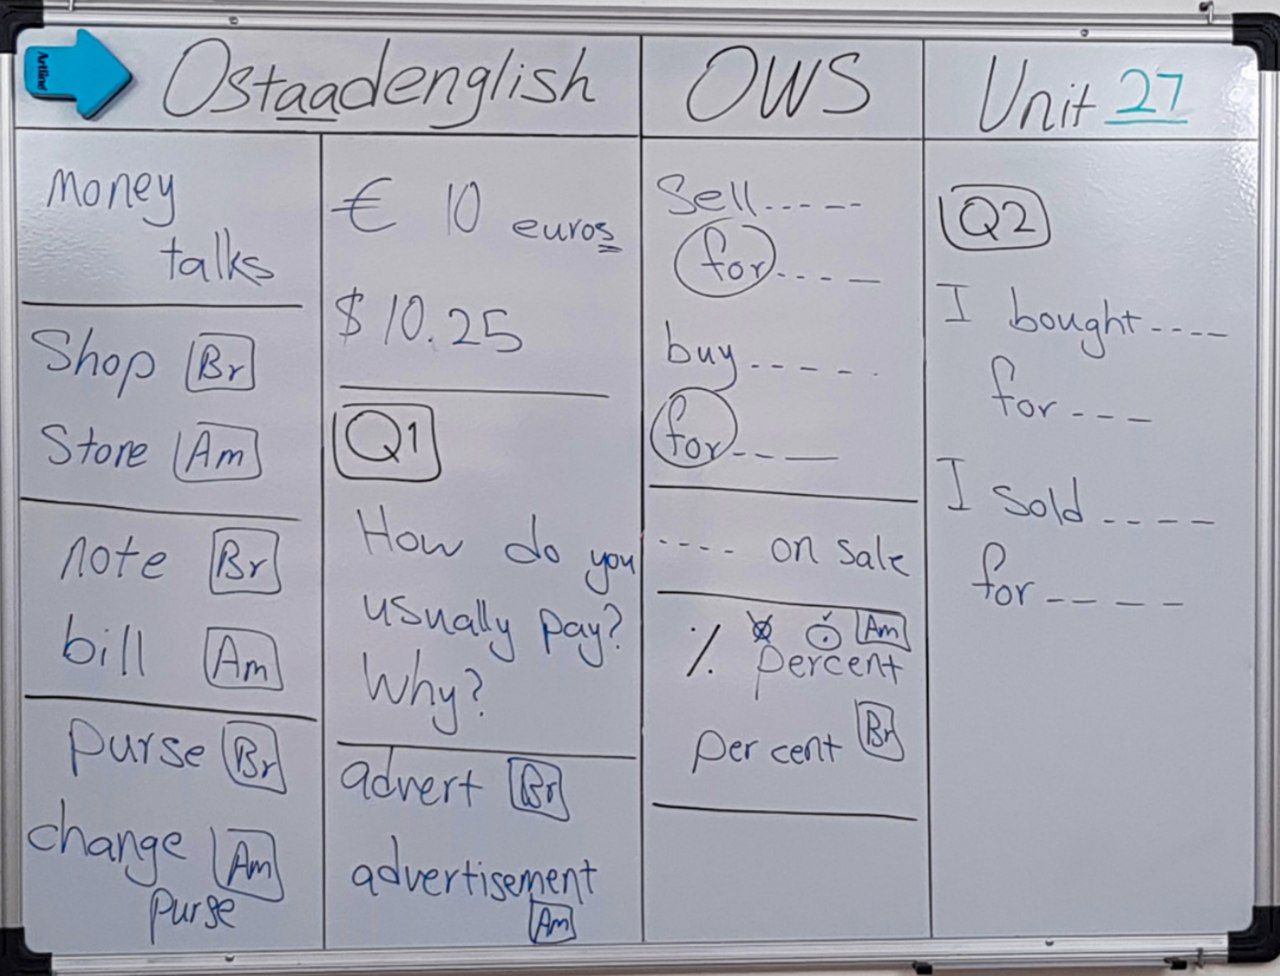 Artline
Ostaadenglish
OWS
Unit 27
Money
talks
Shop Br
Store Am
note Br
bill Am
purse Br
change Am
purse
€ 10 euros
$10.25
Q1
How do you
usually pay?
Why?
advert Br
advertisement
Am
Sell.....
for.....
buy.....
for....
.... on sale
% Am
percent
per cent Br
Q2
I bought....
for...
I sold....
for....